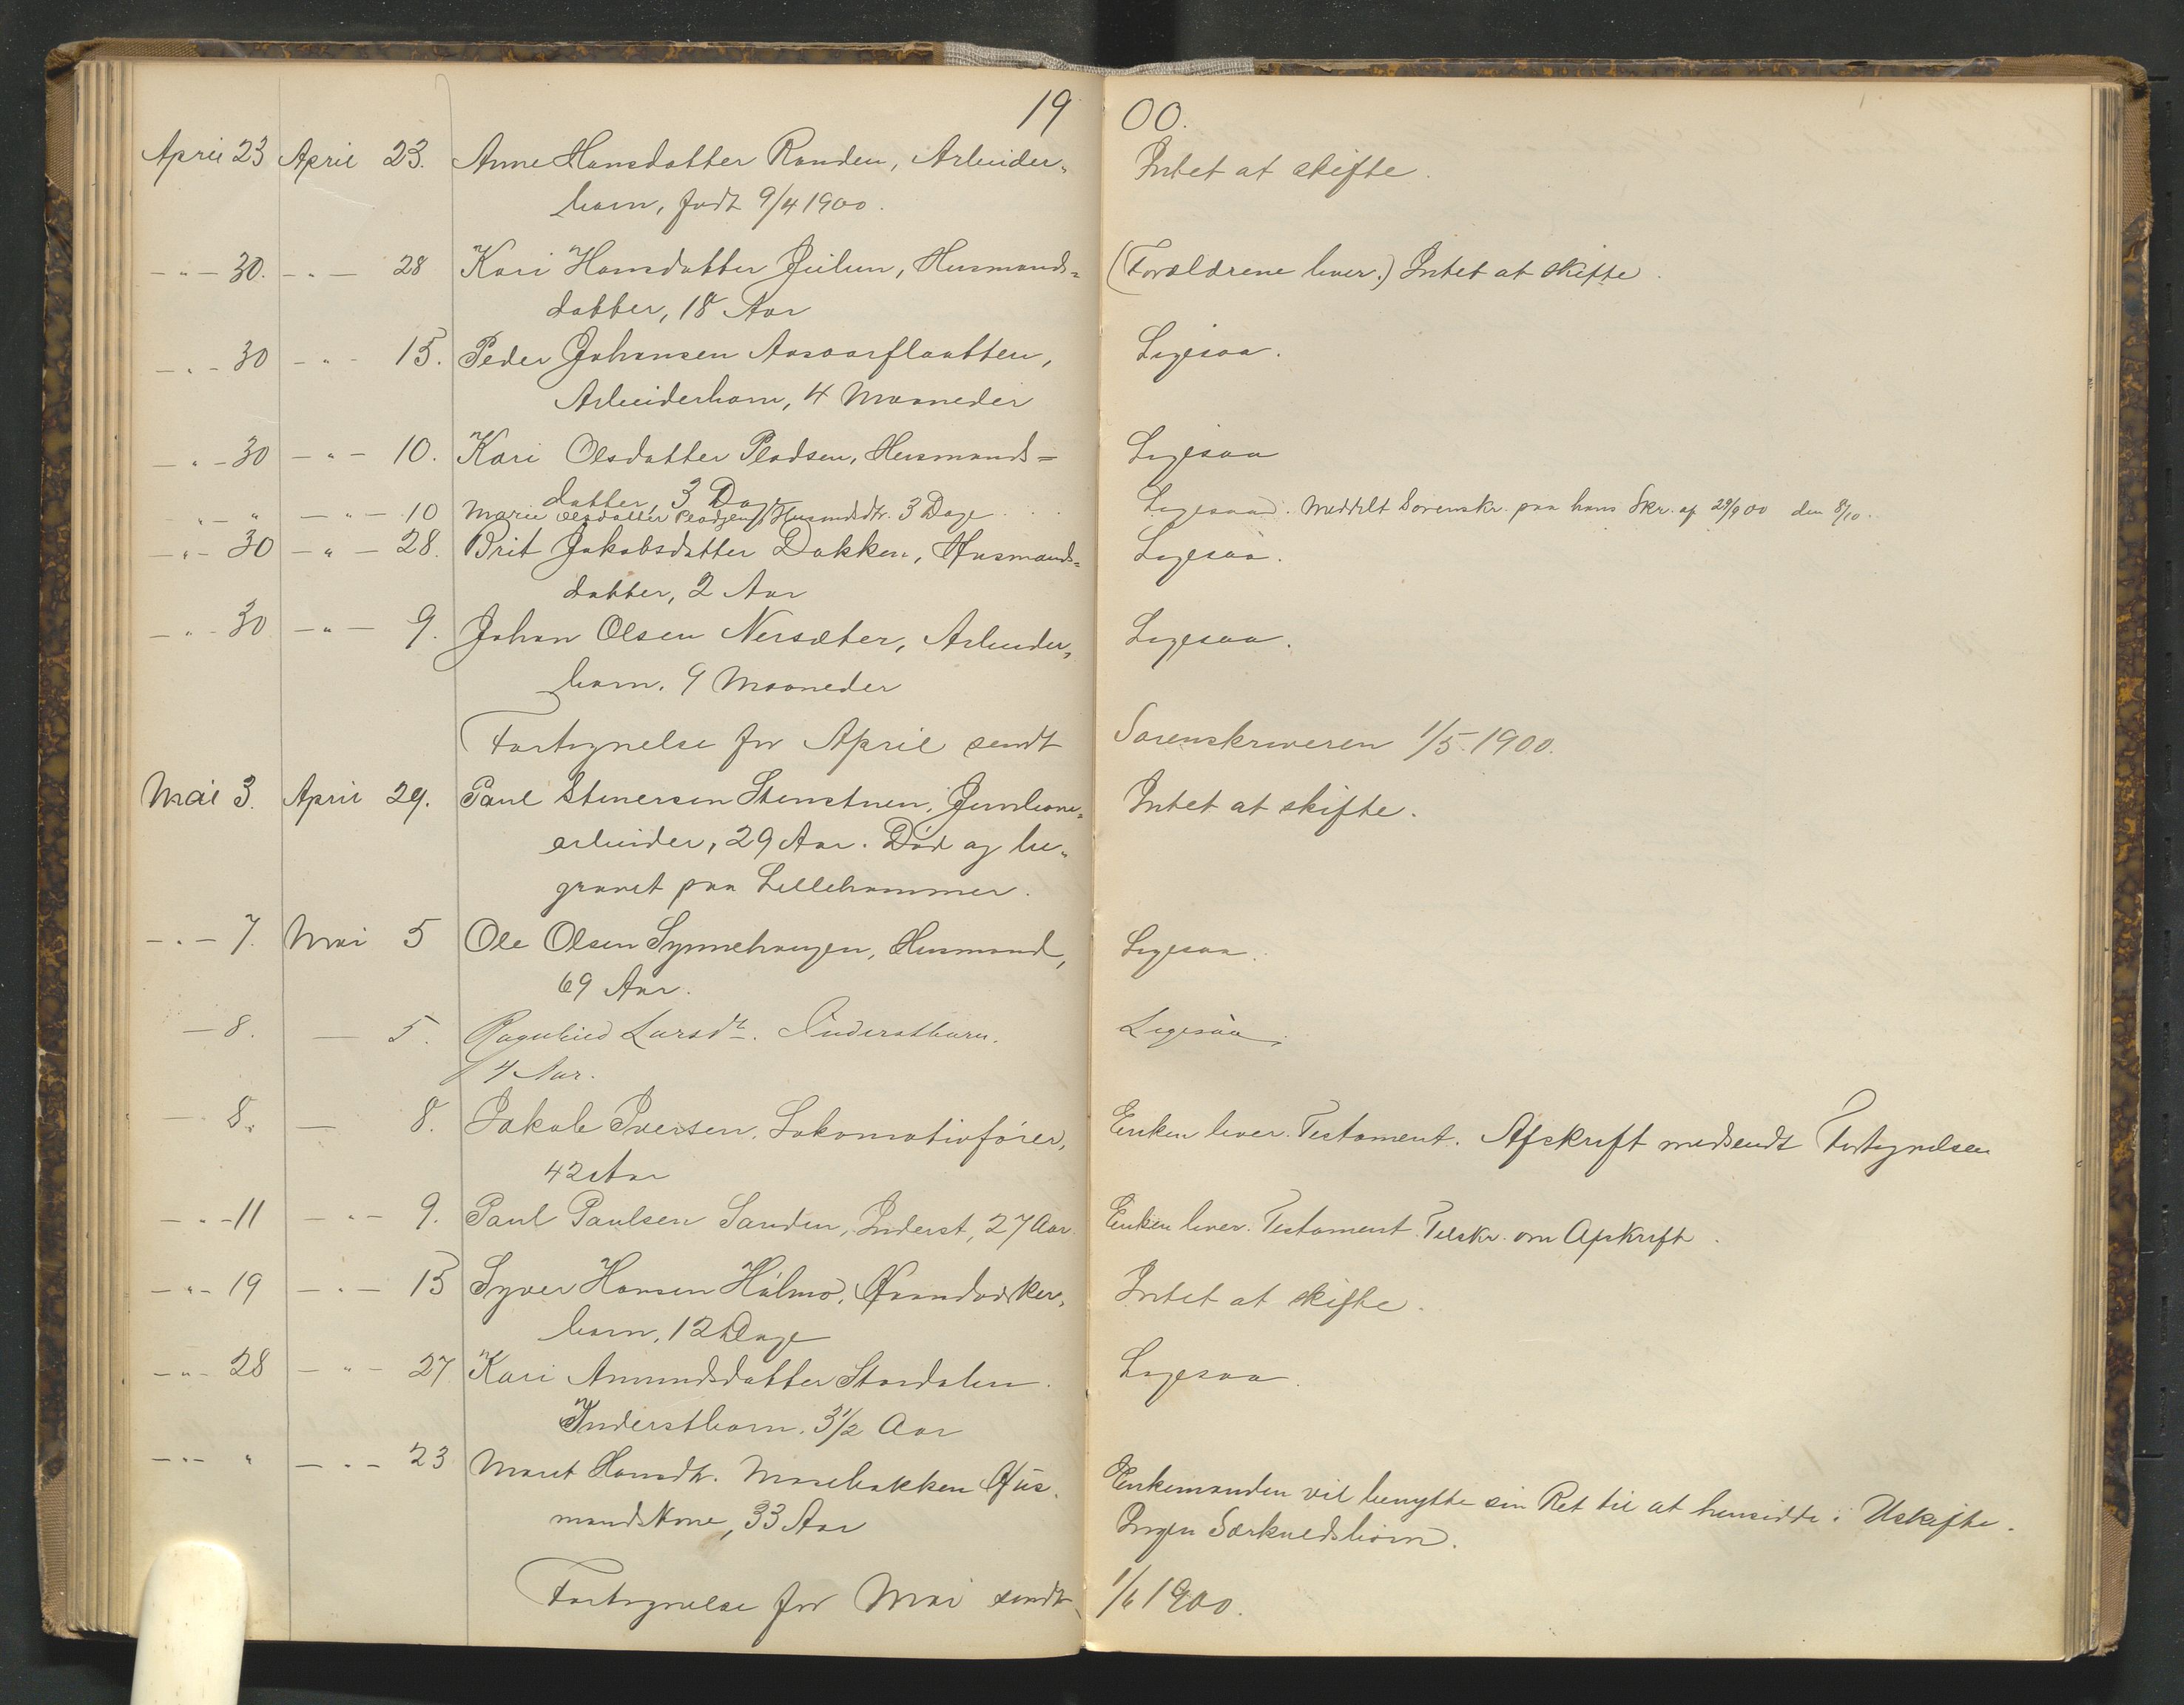 1900.
April 23 April 23. Anne Hansdatter Randen, Arbeider- Intet at skifte.
barn, født 9/4 1900.
-"- 30. -"- 28 Kari Hansdatter Husmands= (Forældrene lever.) Intet at skifte.
datter, 18 Aar
-"- 30 -"- 15. Peder Johansen Aasaarflaatten, Ligesaa.
Arbeiderbarn, 4 Maaneder
-"- 30 -"- 10. Kari Olsdatter Pladsen, Husmands= Ligesaa
datter, 3 Dage
-"- " -"- 10 Marie Olsdatter Pladsen, Husmdsdtr. 3 Dage Ligesaa. Meddelt Sorenskr. paa hans Skr. af 29/9 00 den 8/10.
-"- 30 -"- 28. Brit Jakobsdatter Dokken, Husmands= Ligesaa.
datter, 2 Aar
-"- 30 -"- 9. Johan Olsen Nersæter, Arbeider- Ligesaa.
barn, 9 Maaneder
Fortegnelse for April sendt Sorenskriveren 1/5. 1900.
Mai 3. April 29. Paul Stenersen Stenstuen, Jernbane= Intet at skifte.
arbeider, 29 Aar. Död og be-
gravet paa Lillehammer.
-"- 7. Mai 5 Ole Olsen Synnehaugen, Husmand, Ligesaa.
69 Aar.
— 8. — 5. Ragnhild Larsdt. Inderstbarn. Ligesaa.
4 Aar.
— 8. — 8. Jakob Iversen, Lokomotivförer, Enken lever. Testament. Afskrift medsendt Fortegnelsen
42 Aar
-"- 11 -"- 9. Paul Paulsen Sanden, Inderst, 27 Aar. Enken lever. Testament. Tilskr. om Afskrift.
-"- 19 -"- 15 Syver Hansen Holmo, Haandværker- Intet at skifte.
barn, 12 Dage
-"- 28 -"- 27 Kari Amundsdatter Stordalen. Ligesaa.
Inderstbarn, 3 1/2 Aar
-"- " -"- 23 Marit Hansdtr. Mosebakken Hus- Enkemanden vil benytte sin Ret til at hensidde i Uskifte.
mandskone, 33 Aar Ingen Særkuldsbörn.
Fortegnelse for Mai sendt 1/6 1900.